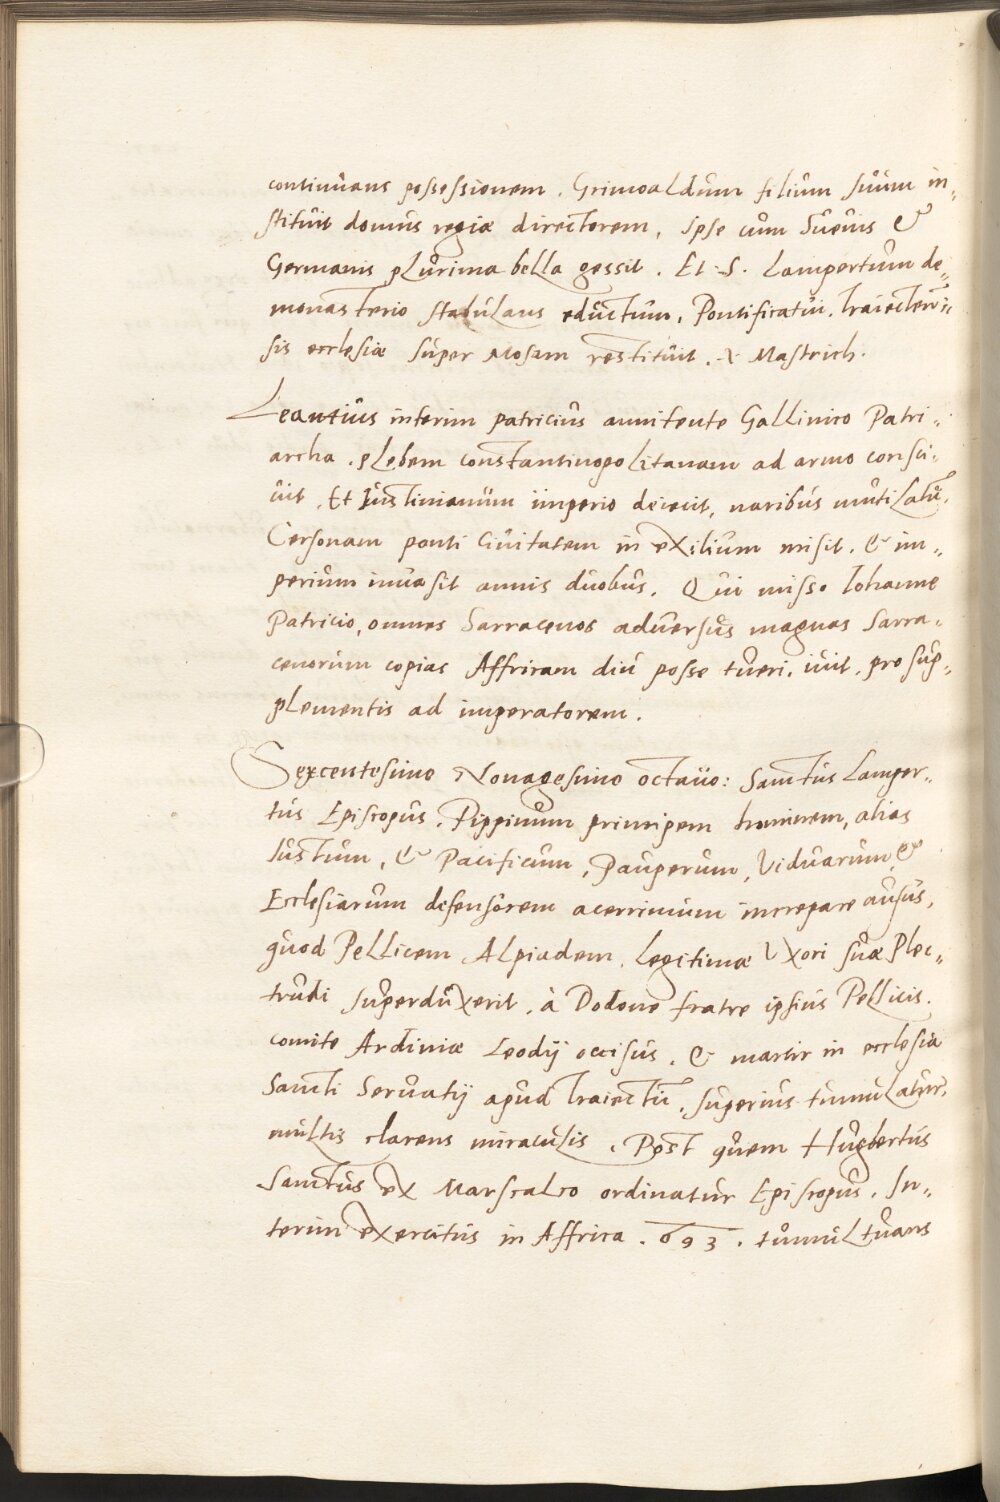 continuans possessionem. Grimoaldum filium suum in„
stituit domus regiæ directorem, Ipse cum Suevis &
Germanis plurima bella gessit. Et S. Lampertum de„
monasterio stabulaus eductum, Pontificatui. Traiecten„
sis ecclesiæ super Mosam restituit. & Mastrich.
Leantius interim patricius annitente Gallinico Patri„
archa. plebem constantinopolitanam ad armo consci„
uit, Et Iustinianum imperio deiecit, naribus mutilatū.
Cersonam ponti Ciuitatem in exilium misit. & im„
perium inuasit annis duobus. Qui misso Iohanne
Patricio, omnes Sarracenos aduersus magnas Sarra„
cenorum copias Affricam diu posse tueri. iuit. pro sup„
plementis ad imperatorem.
Sexcentesimo Nonagesimo octauo: Sanctus Lamper„
tus Episcopus. Pippinum principem hominem, alias
Iustum, & Pacificum, Pauperum, Viduarum, &
Ecclesiarum defensorem acerrimum increpare ausus,
quod Pellicem Alpiadem. Legitimæ Vxori suæ Plec„
trudi superduxerit. à Dodone fratre ipsius Pellicis.
comite Ardiniæ Leodij occisus. & martir in ecclesia
Sancti Seruatij apud Traiectū. superius tumulatur,
multis clarens miraculis. Post quem Hugbertus
Sanctus ex Marscalco ordinatur Episcopus. In„
terim exercitus in Affrica. 693. tumultuans